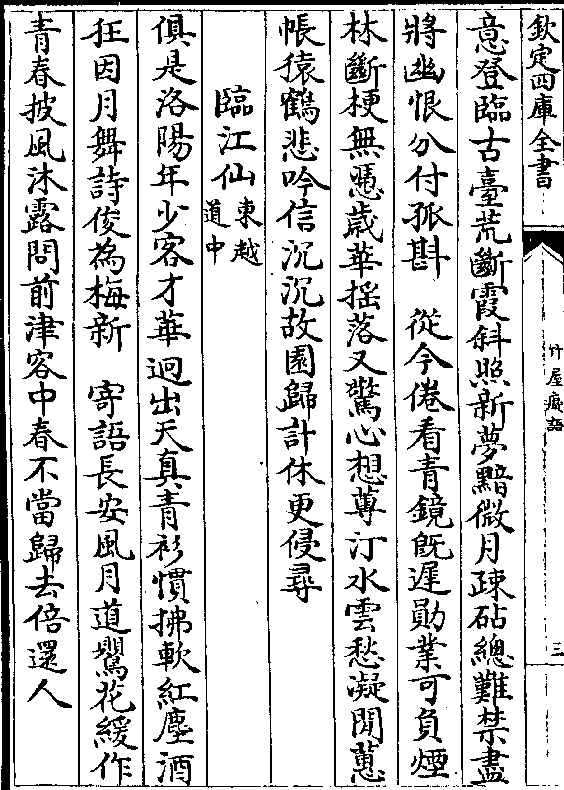 欽定四庫全書
竹屋癡語
三
意登臨古臺荒斷霞斜照新夢黯微月疎砧總難禁盡
將幽恨分付孤斟　從今倦看青鏡旣遲勛業可負煙
林斷梗無憑歲華揺落又驚心想蓴汀水雲愁凝閒蕙
帳猿鶴悲吟信沉沉故園歸計休更侵尋
臨江仙東越道中
俱是洛陽年少客才華迥出天真青衫慣拂軟紅塵酒
狂因月舞詩俊為梅新　寄語長安風月道鸎花緩作
青春披風沐露問前津客中春不當歸去倍還人